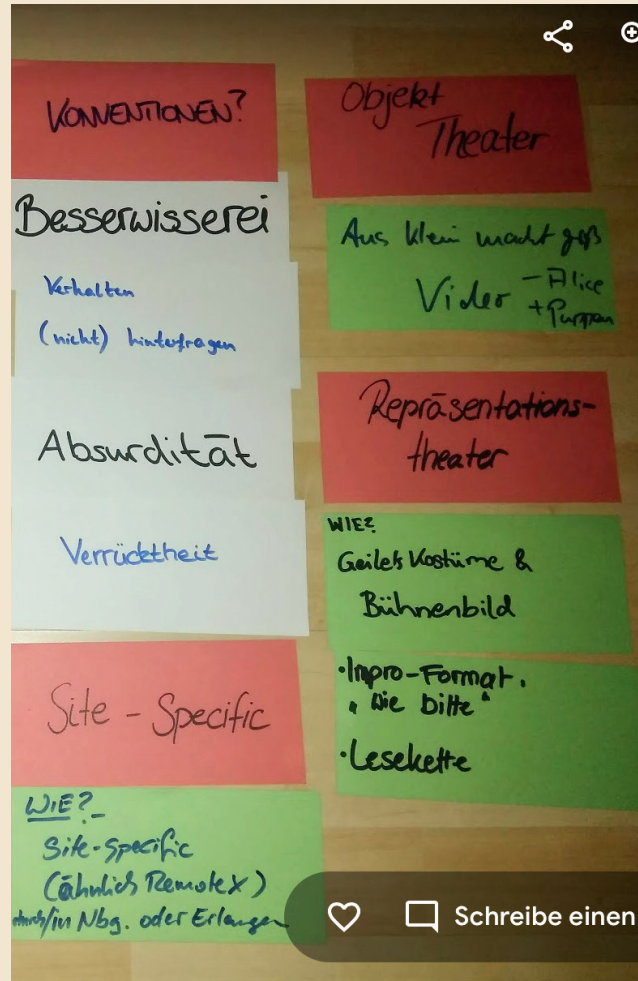 KONVENTIONEN?
Besserwisserei
Verhalten
(nicht) hinterfragen
Absurdität
Verrücktheit
Site - Specific
WIE?
Site-specific
(ähnlich Remote X)
durch/in Nbg. oder Erlangen
Objekt
Theater
Aus klein macht groß
Video - Alice
+ Puppen
Repräsentations-
theater
WIE?
Geile Kostüme &
Bühnenbild
·Impro-Format.
"Wie bitte"
·Lesekette
Schreibe einen